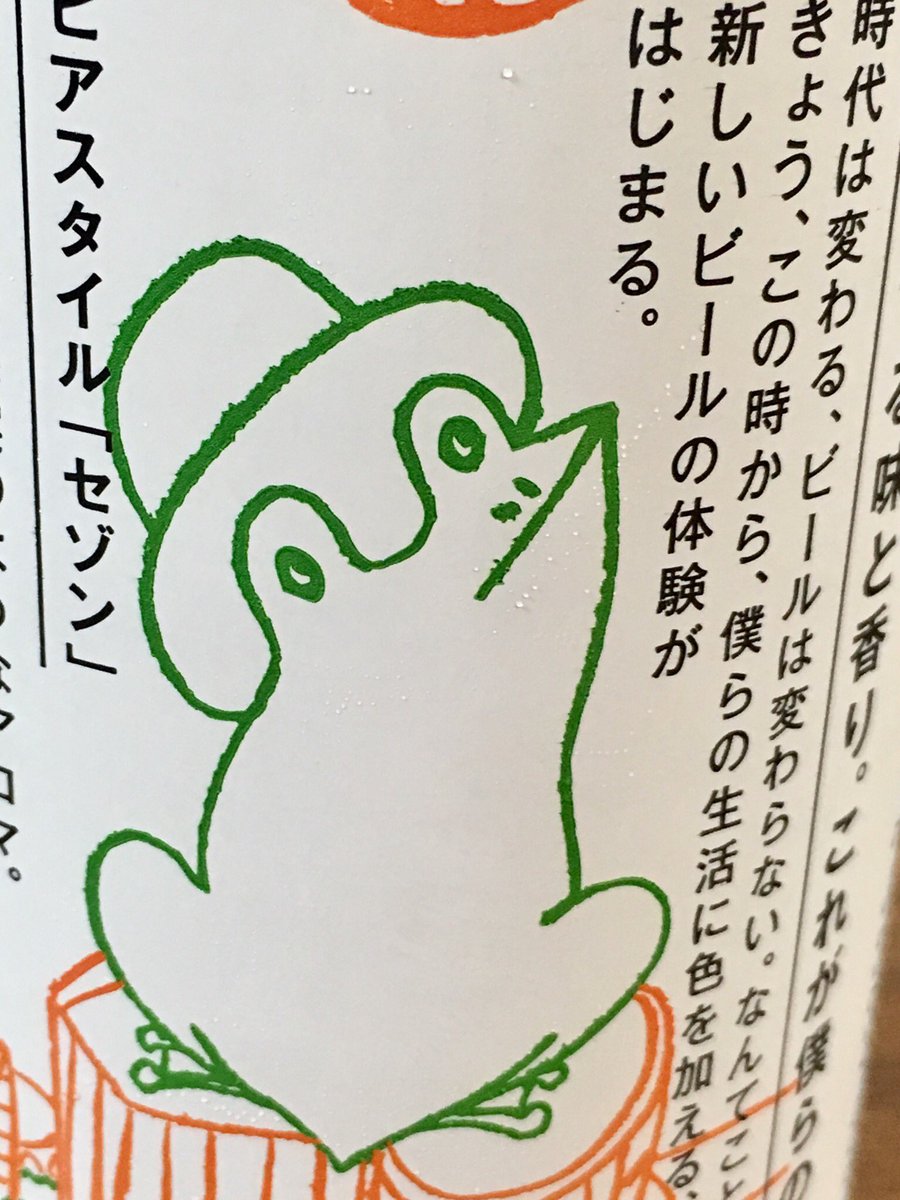 る味と香り。これが僕らの
時代は変わる、ビールは変わらない。なんてこと
きょう、この時から、僕らの生活に色を加える、
新しいビールの体験が
はじまる。
ビアスタイル「セゾン」
アロマ。